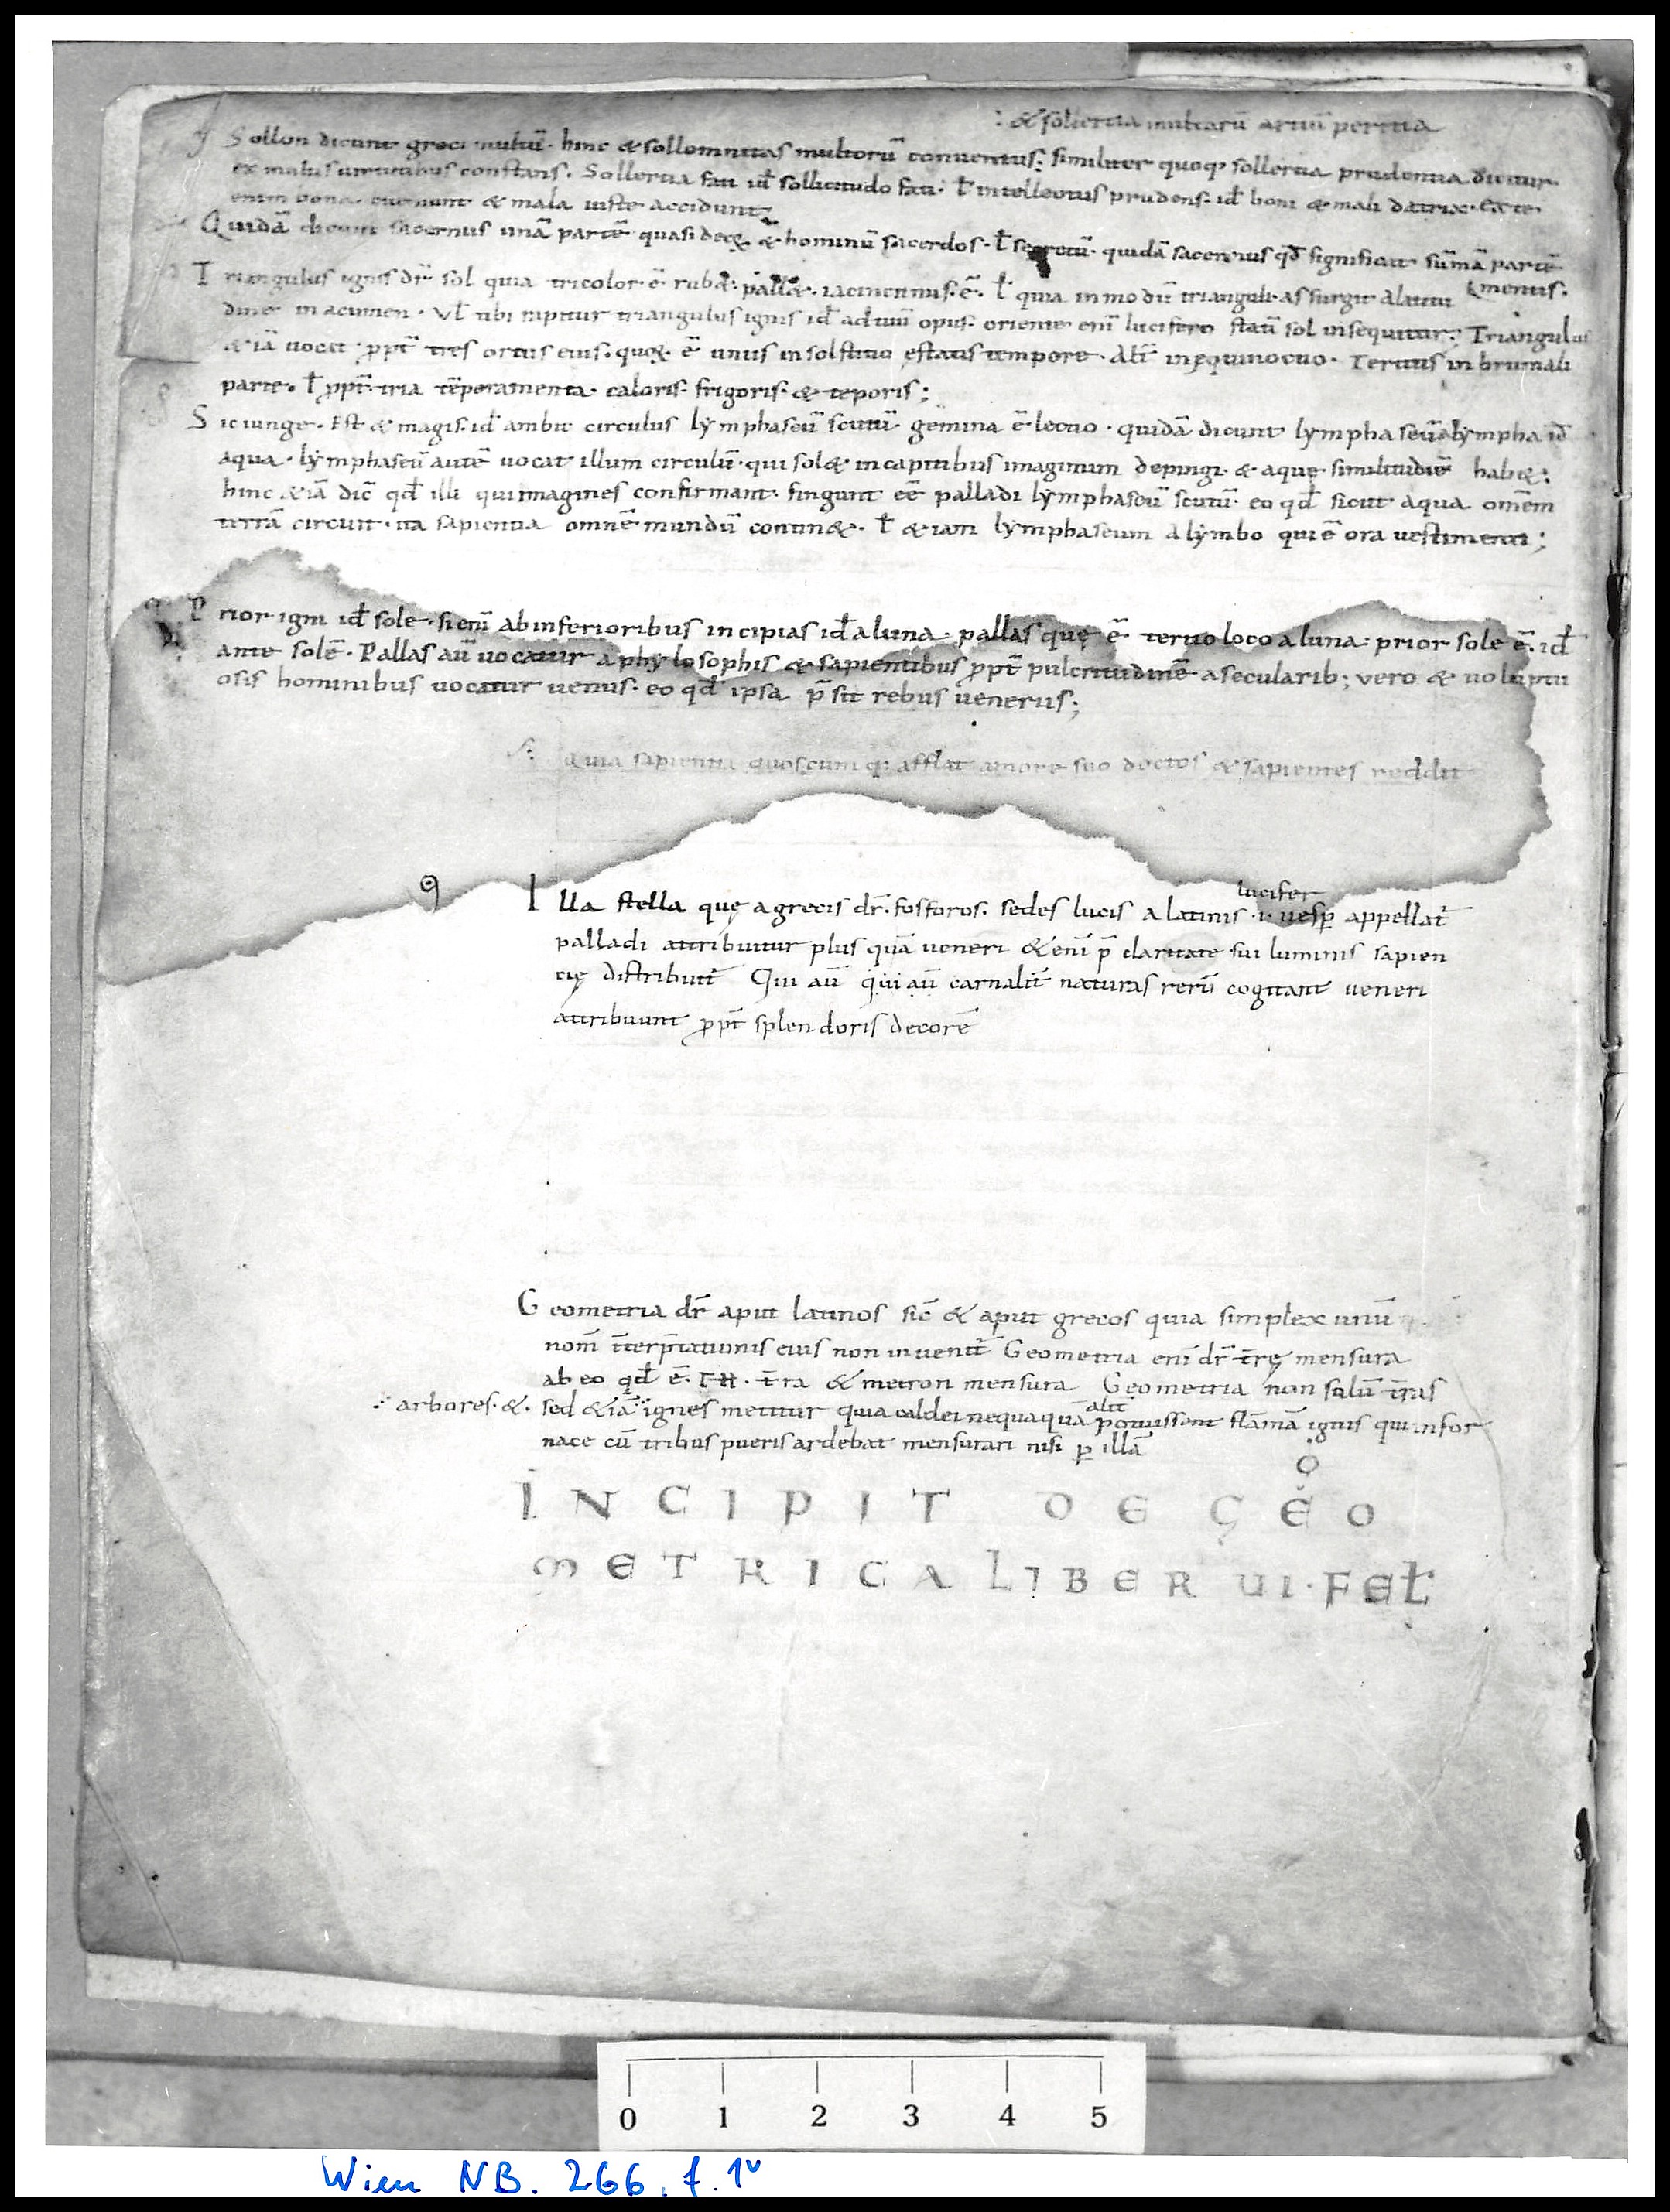 : & sollertia multarū artiū peritia
y Sollon dicunt greci multū· hinc & sollemnitas multorū conventus; similiter quoq; sollertia prudentia dicitur
ex multis virtutibus constans. Sollertia fati id sollicitudo fati· ł intellectus prudens· id boni & mali
enim bona eveniunt & mala iuste accidunt;
Quidā dicunt sacernus unā partē quasi & hominū sacerdos· ł secretū· quidā qđ significat sūmā partē
mentis·
Triangulus ignis dr̄ sol quia tricolor ē rub&· pall&· iacinctinus· ē· ł quia in modū trianguli assurgit a latitu
dine in acumen· Vł tibi rapitur triangulus ignis id ad tuū opus· oriente enī lucifero statī sol insequitur; Triangulus
&iā vocat· ꝓpt̄ tres ortus eius· quoꝝ ē unus in solstitio ęstatis tempore· alt̄ in equinoctio· Tertius in brumali
parte· ł ꝓpt̄ tria tēperamenta· caloris· frigoris· & teporis;
Sic iunge· Est & magis· id ambit circulus lymphaseū scutū· gemina ē lectio· quidā dicunt lymphaseū a lympha id
aqua· lymphaseū autē vocat illum circulū· qui sol& in capitibus imaginum depingi· & aquę similitudinē hab&:
hinc &iā dic̄ qđ illi qui imagines confirmant· fingunt eē palladi lymphaseū scutū· eo qđ sicut aqua omēm
terrā circuit· ita sapientia omnē mundū contin&· ł &iam lymphaseum a lymbo qui ē ora vestimenti;
Prior igni id sole· si enī ab inferioribus incipias id a luna· pallas quę ē tertio loco a luna· prior sole ē· id
ante solē· Pallas aū vocatur a phylosophis & sapientibus ꝓpt̄ pulcritudinē a secularib; vero & voluptu
osis hominibus vocatur venus· eo qđ ipsa p̄sit rebus venerus;
Quia sapientia quoscumq; afflat amore suo doctos & sapientes reddit
9 Illa stella quę a grecis dr̄· fosforos· sedes lucis a latinis ·i· vesꝑ appellat̄
lucifer
palladi attribuitur plus quā veneri & enī p̄ claritate sui luminis sapien
cię distribuit̄ Qui aū qui aū carnalit̄ naturas rerū cogitant veneri
attribuunt ꝓpt̄ splendoris decorē
Geometria dr̄ aput latinos sic̄ & aput grecos quia simplex unū
nom̄ īterp̄tationis eius non invenit̄ Geometria enī dr̄ t̄rę mensura
ab eo qđ ē· ΓΗ· t̄ra & metron mensura Geometria non solū t̄ras
: arbores· &· sed &iā ignes metitur quia caldei nequaquā potuissent flāmā ignis qui in for
alit̄
nace cū tribus pueris ardebat mensurari nisi ꝑ illā
O
INCIPIT DE GEO
METRICA LIBER VI· FEŁ
0 1 2 3 4 5
Wien NB. 266. f. 1v